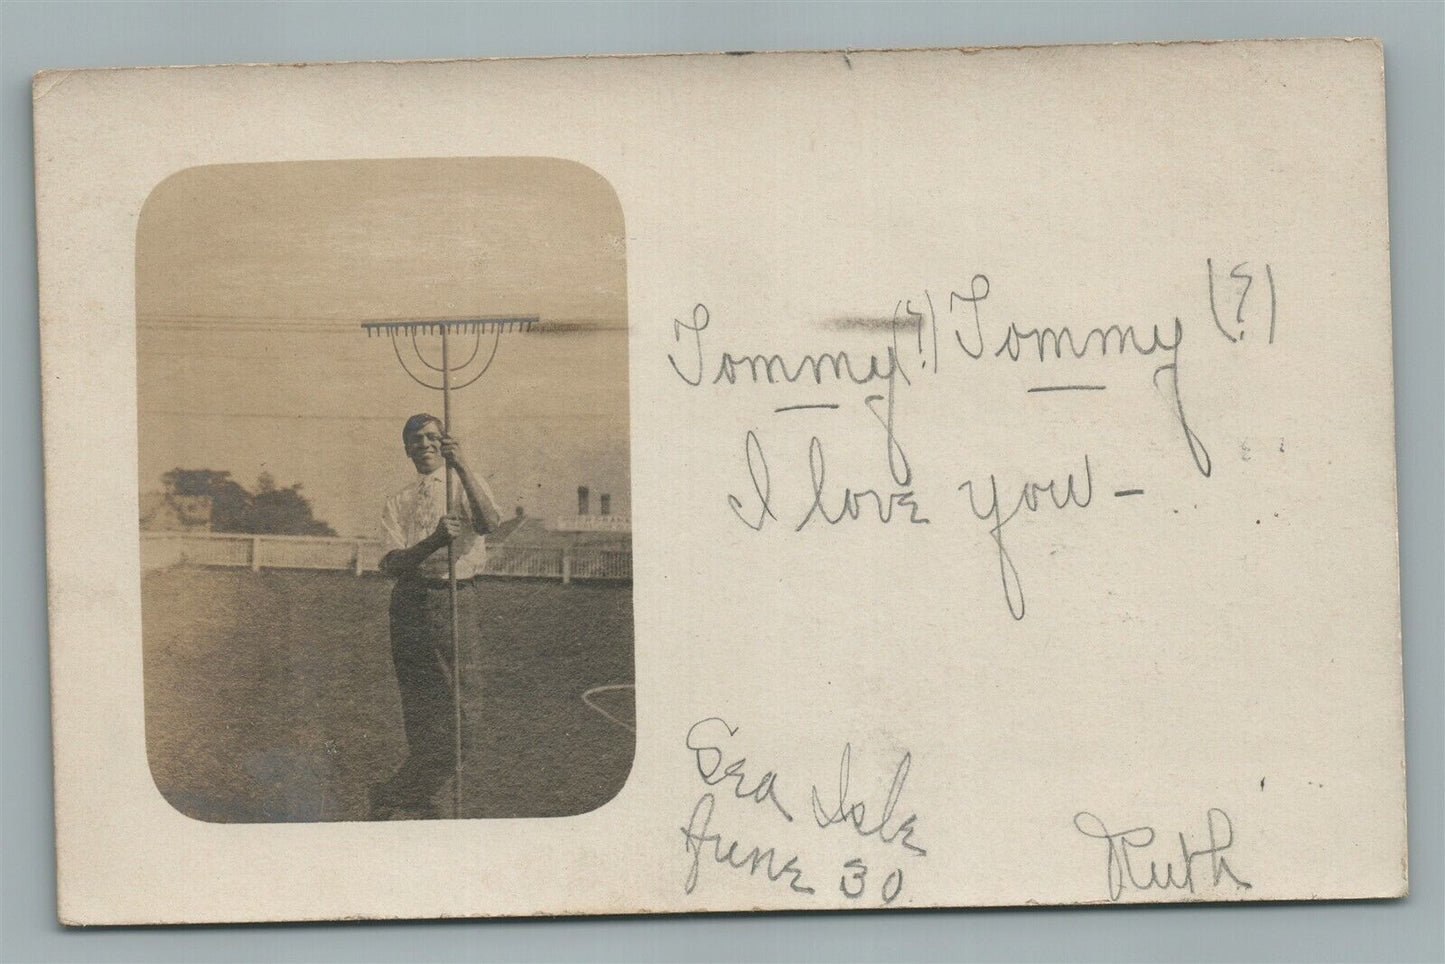 Tommy(?) Tommy (?)
I love you -
Sea Isle
June 30
Ruth